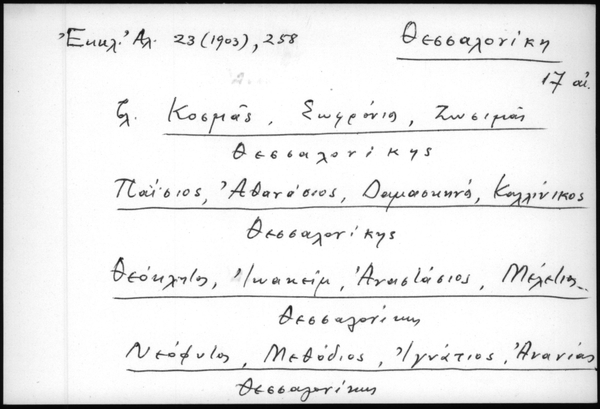 Ἐκκλ. Ἀλ. 23 (1903), 258
Θεσσαλονίκη
17 αἰ.
βλ. Κοσμᾶς, Σωφρόνιος, Ζωσιμᾶς
Θεσσαλονίκης
Παΐσιος, Ἀθανάσιος, Δαμασκηνός, Καλλίνικος
Θεσσαλονίκης
Θεόκλητος, Ἰωακείμ, Ἀναστάσιος, Μελέτιος
Θεσσαλονίκης
Νεόφυτος, Μεθόδιος, Ἰγνάτιος, Ἀνανίας
Θεσσαλονίκης